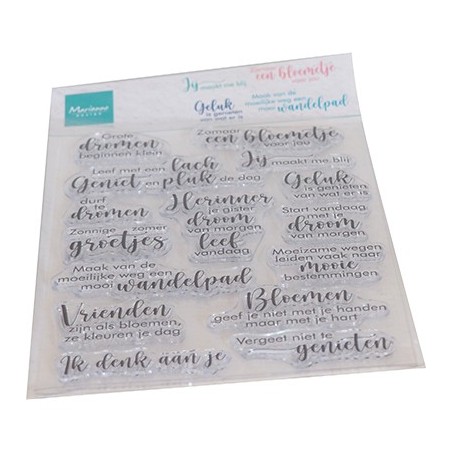 Marianne
DESIGN
Jij maakt me blij
Zomaar
een bloemetje
voor jou
Geluk
is genieten
van wat er is
Maak van de
moeilijke weg een
mooi wandelpad
Grote
dromen
beginnen klein
Zomaar
een bloemetje
voor jou
Leef met een lach
Geniet en pluk de dag
Jij maakt me blij
Geluk
is genieten
van wat er is
durf
te
dromen
Herinner
je gister
droom
van morgen
leef
vandaag
Start vandaag
met je
droom
van morgen
Zonnige zomer
groetjes
Moeizame wegen
leiden vaak naar
mooie
bestemmingen
Maak van de
moeilijke weg een
mooi wandelpad
Vrienden
zijn als bloemen,
ze kleuren je dag
Bloemen
geef je niet met je handen
maar met je hart
Ik denk aan je
Vergeet niet te
genieten